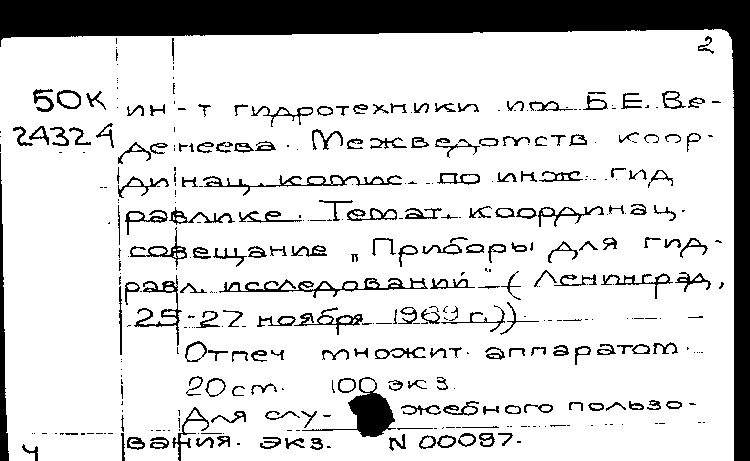 2
50К ин-т гидротехники им Б.Е. Ве-
24324 денеева. Межведомств. коор-
динац. комис. по инж. гид
равлике. Темат. координац.
совещание „Приборы для гид-
равл. исследований" (Ленинград,
25-27 ноября 1969 г.))
Отпеч множит. аппаратом.
20 см. 100 экз.
Для слу- жебного пользо-
вания. экз. N 00097.
Ч